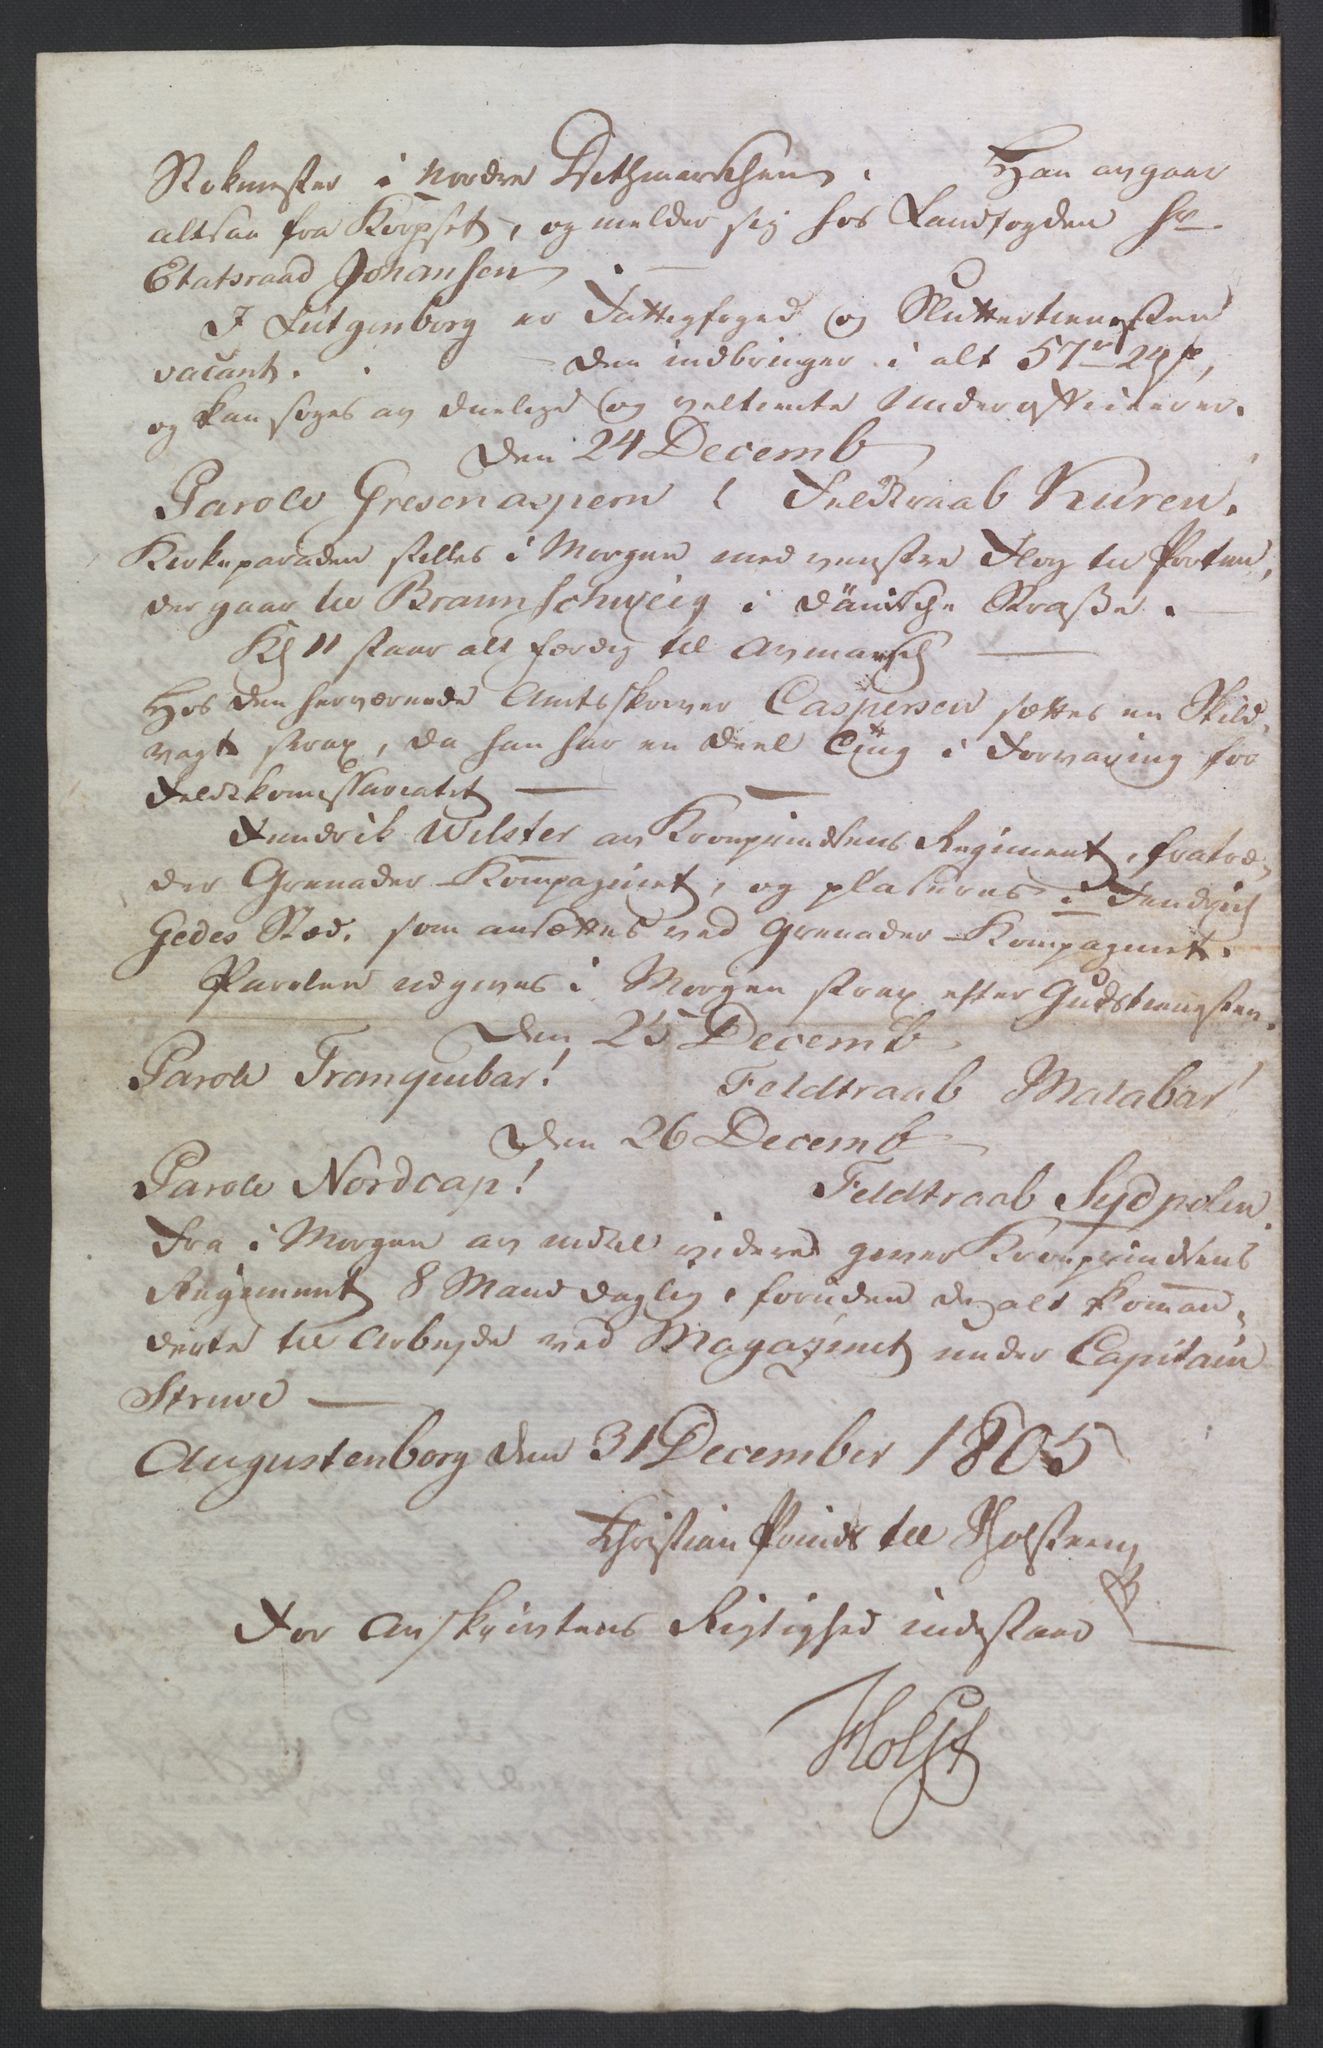 Stokmester i Nordre Dithmarschen. Han avgaar
altsaa fra Korpset, og melder sig hos Landfogden Hr.
Etatsraad Johansen. —
I Lütgenborg er Fattigfoged og Sluttertienesten
vacant. . — Den indbringer i alt 57 r 24 s,
og kan søges av duelige og veltiente Underofficierer.
Den 24 Decemb
Parole / Feldtraab Kuren.
Kirkeparaden stilles i Morgen med venstre Fløy til Porten,
der gaar til Braunschweig i Dänische Straße. —
Kl 11 staar alt færdig til Avmarsch —
Hos den herværende Amtsskriver Caspersen sættes en Skild¬
vagt strax, da han har en Deel i Forvaring for
Feldtkomissariatet —
Fendrik Wilster av Kronprindsens Regiment, fratræ¬
der Grenader-Kompagniet, og plaseres i Fendrich
Gedes Stæd, som ansættes ved Grenader-Kompagniet.
Parolen udgives i Morgen strax efter Gudstienesten.
Den 25 Decemb
Parole Tranquebar! Feldtraab Malabar!
Den 26 Decemb
Parole Nordcap! Feldtraab Sydpolen.
Fra i Morgen av indtil videre giver Kronprindsens
Regiment 8 Mand daglig, foruden de alt koman¬
derte til Arbejde ved Magazinet under Capitain
Struve —
Augustenborg den 31 December 1805
Christian Prinds til Holsteen
For Avskrivtens Rigtighed indestaar —
Holst